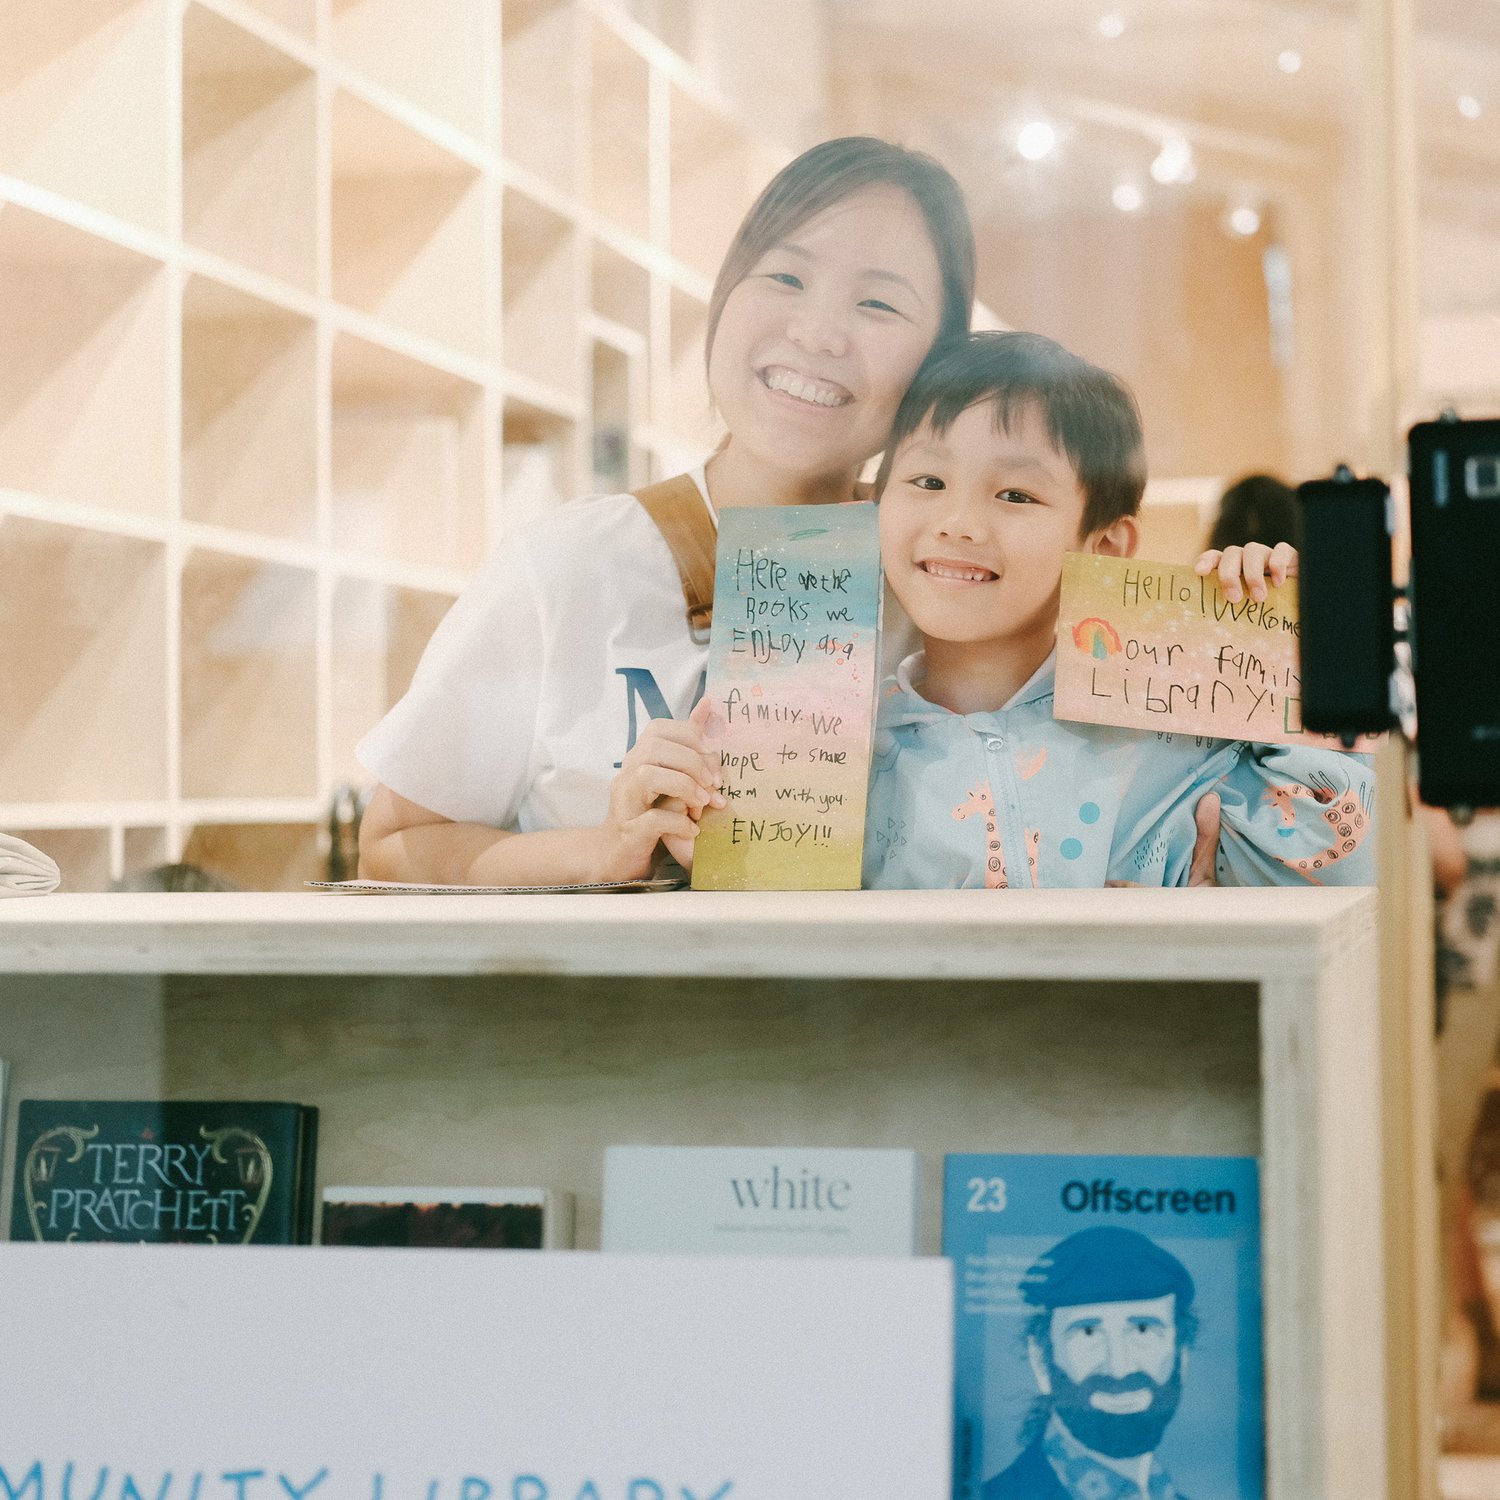 Here are the
Books we
ENjoy as a
family. We
hope to share
them with you.
ENJOY!!!
Hello! Welcome
our family
LibrarY!
M
TERRY
PRATCHETT
white
23 Offscreen
MUNITY LIBRARY